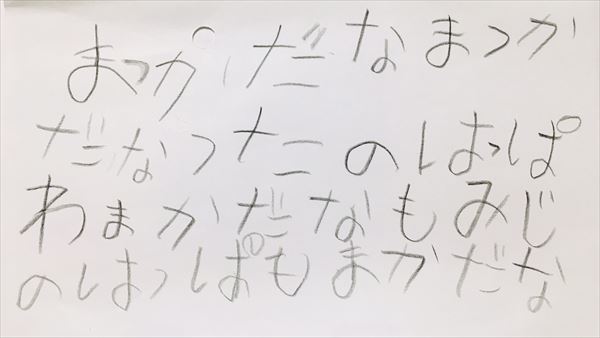 まっかだなまつか
だなつたのはっぱ
わまかだなもみじ
のはっぱもまかだな